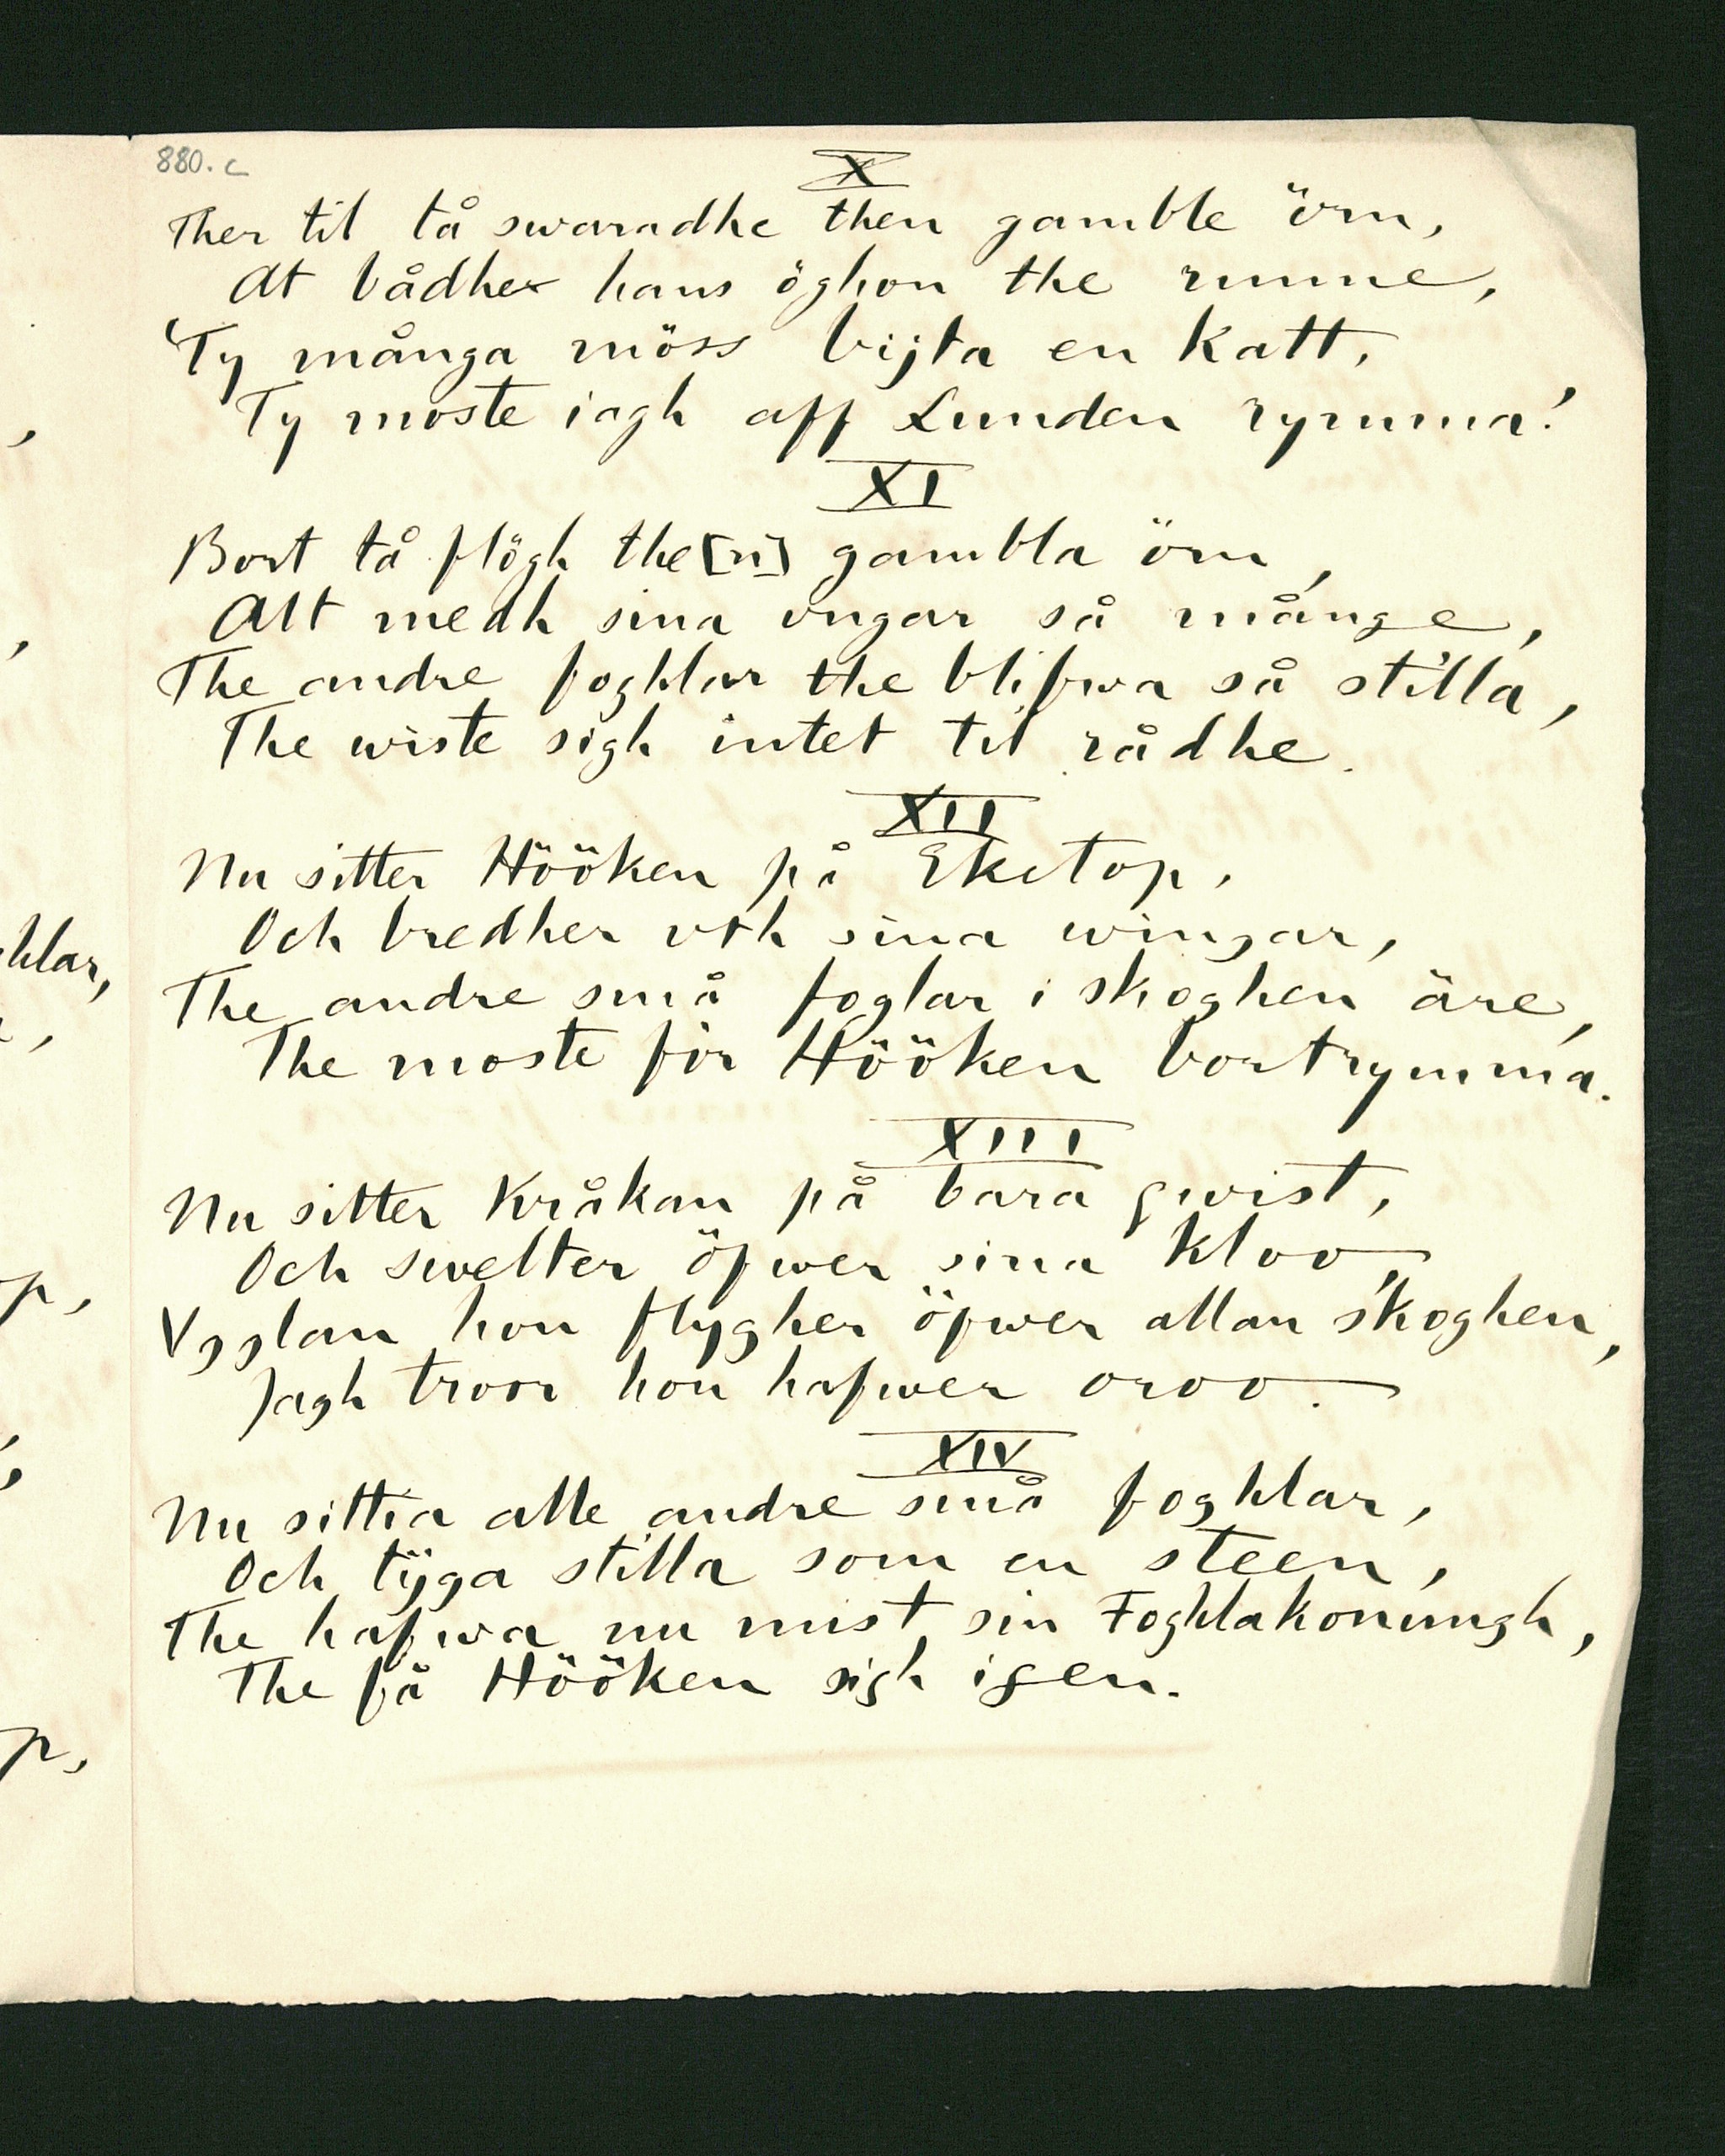 880. c
X
Ther til tå swaradhe then gamble örn,
At bådhe hans öghon the runne,
Ty många möss bijta en Katt,
Ty moste iagh aff Lunden rymma!
XI
Bort tå flögh the[n] gambla örn,
Alt medh sina vngar så månge,
The andre foghlar the blifwa så stilla,
The wiste sigh intet til rådhe.
XII
Nu sitter Hööken på Eketop,
Och bredher vth sina wingar,
The andre små foglar i skoghen äre,
The moste för Hööken bortrymma.
XIII
Nu sitter Kråkan på bara qwist,
Och swelter öfwer sina Kloo,
Vgglan hon flygher öfwer allan skoghen,
Jagh troor hon hafwer oroo.
XIV
Nu sittia alle andre små foghlar,
Och tijga stilla som en steen,
The hafwa nu mist sin Foghlakonungh,
The få Hööken sigh igen.